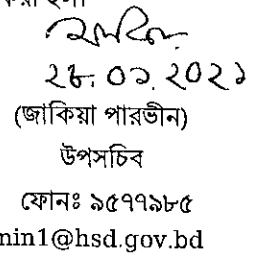 ২৮. ০১. ২০২১
(জাকিয়া পারভীন)
উপসচিব
ফোনঃ ৯৫৭৭৯৮৫
min1@hsd.gov.bd